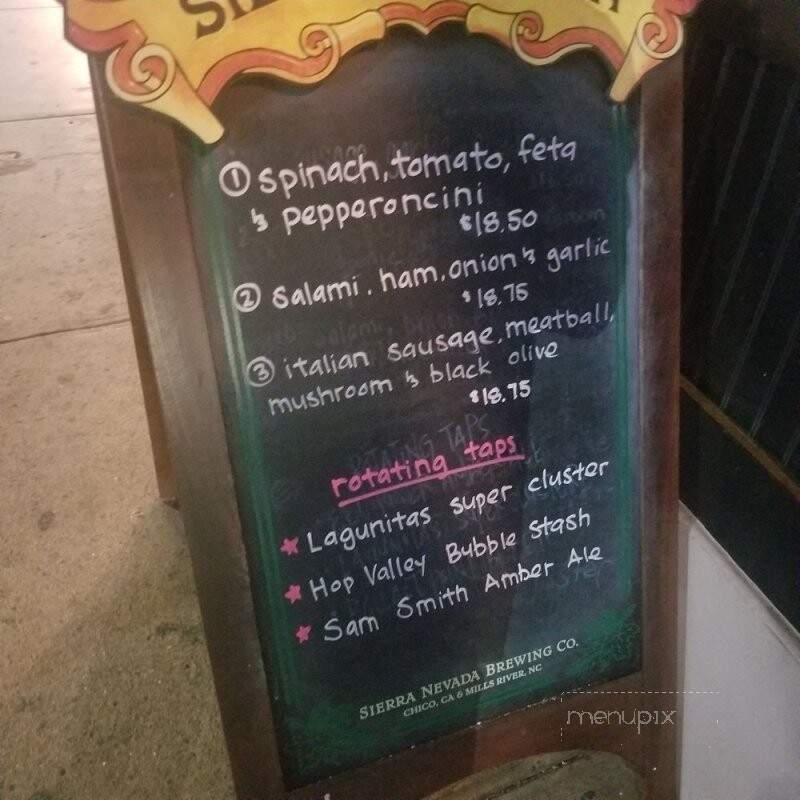 ① spinach, tomato, feta
& pepperoncini
$18.50
② salami, ham, onion & garlic
$18.75
③ italian sausage, meatball,
mushroom & black olive
$18.75
rotating taps
★ Lagunitas super cluster
★ Hop Valley Bubble stash
★ Sam Smith Amber Ale
SIERRA NEVADA BREWING CO.
CHICO, CA & MILLS RIVER, NC
menupix